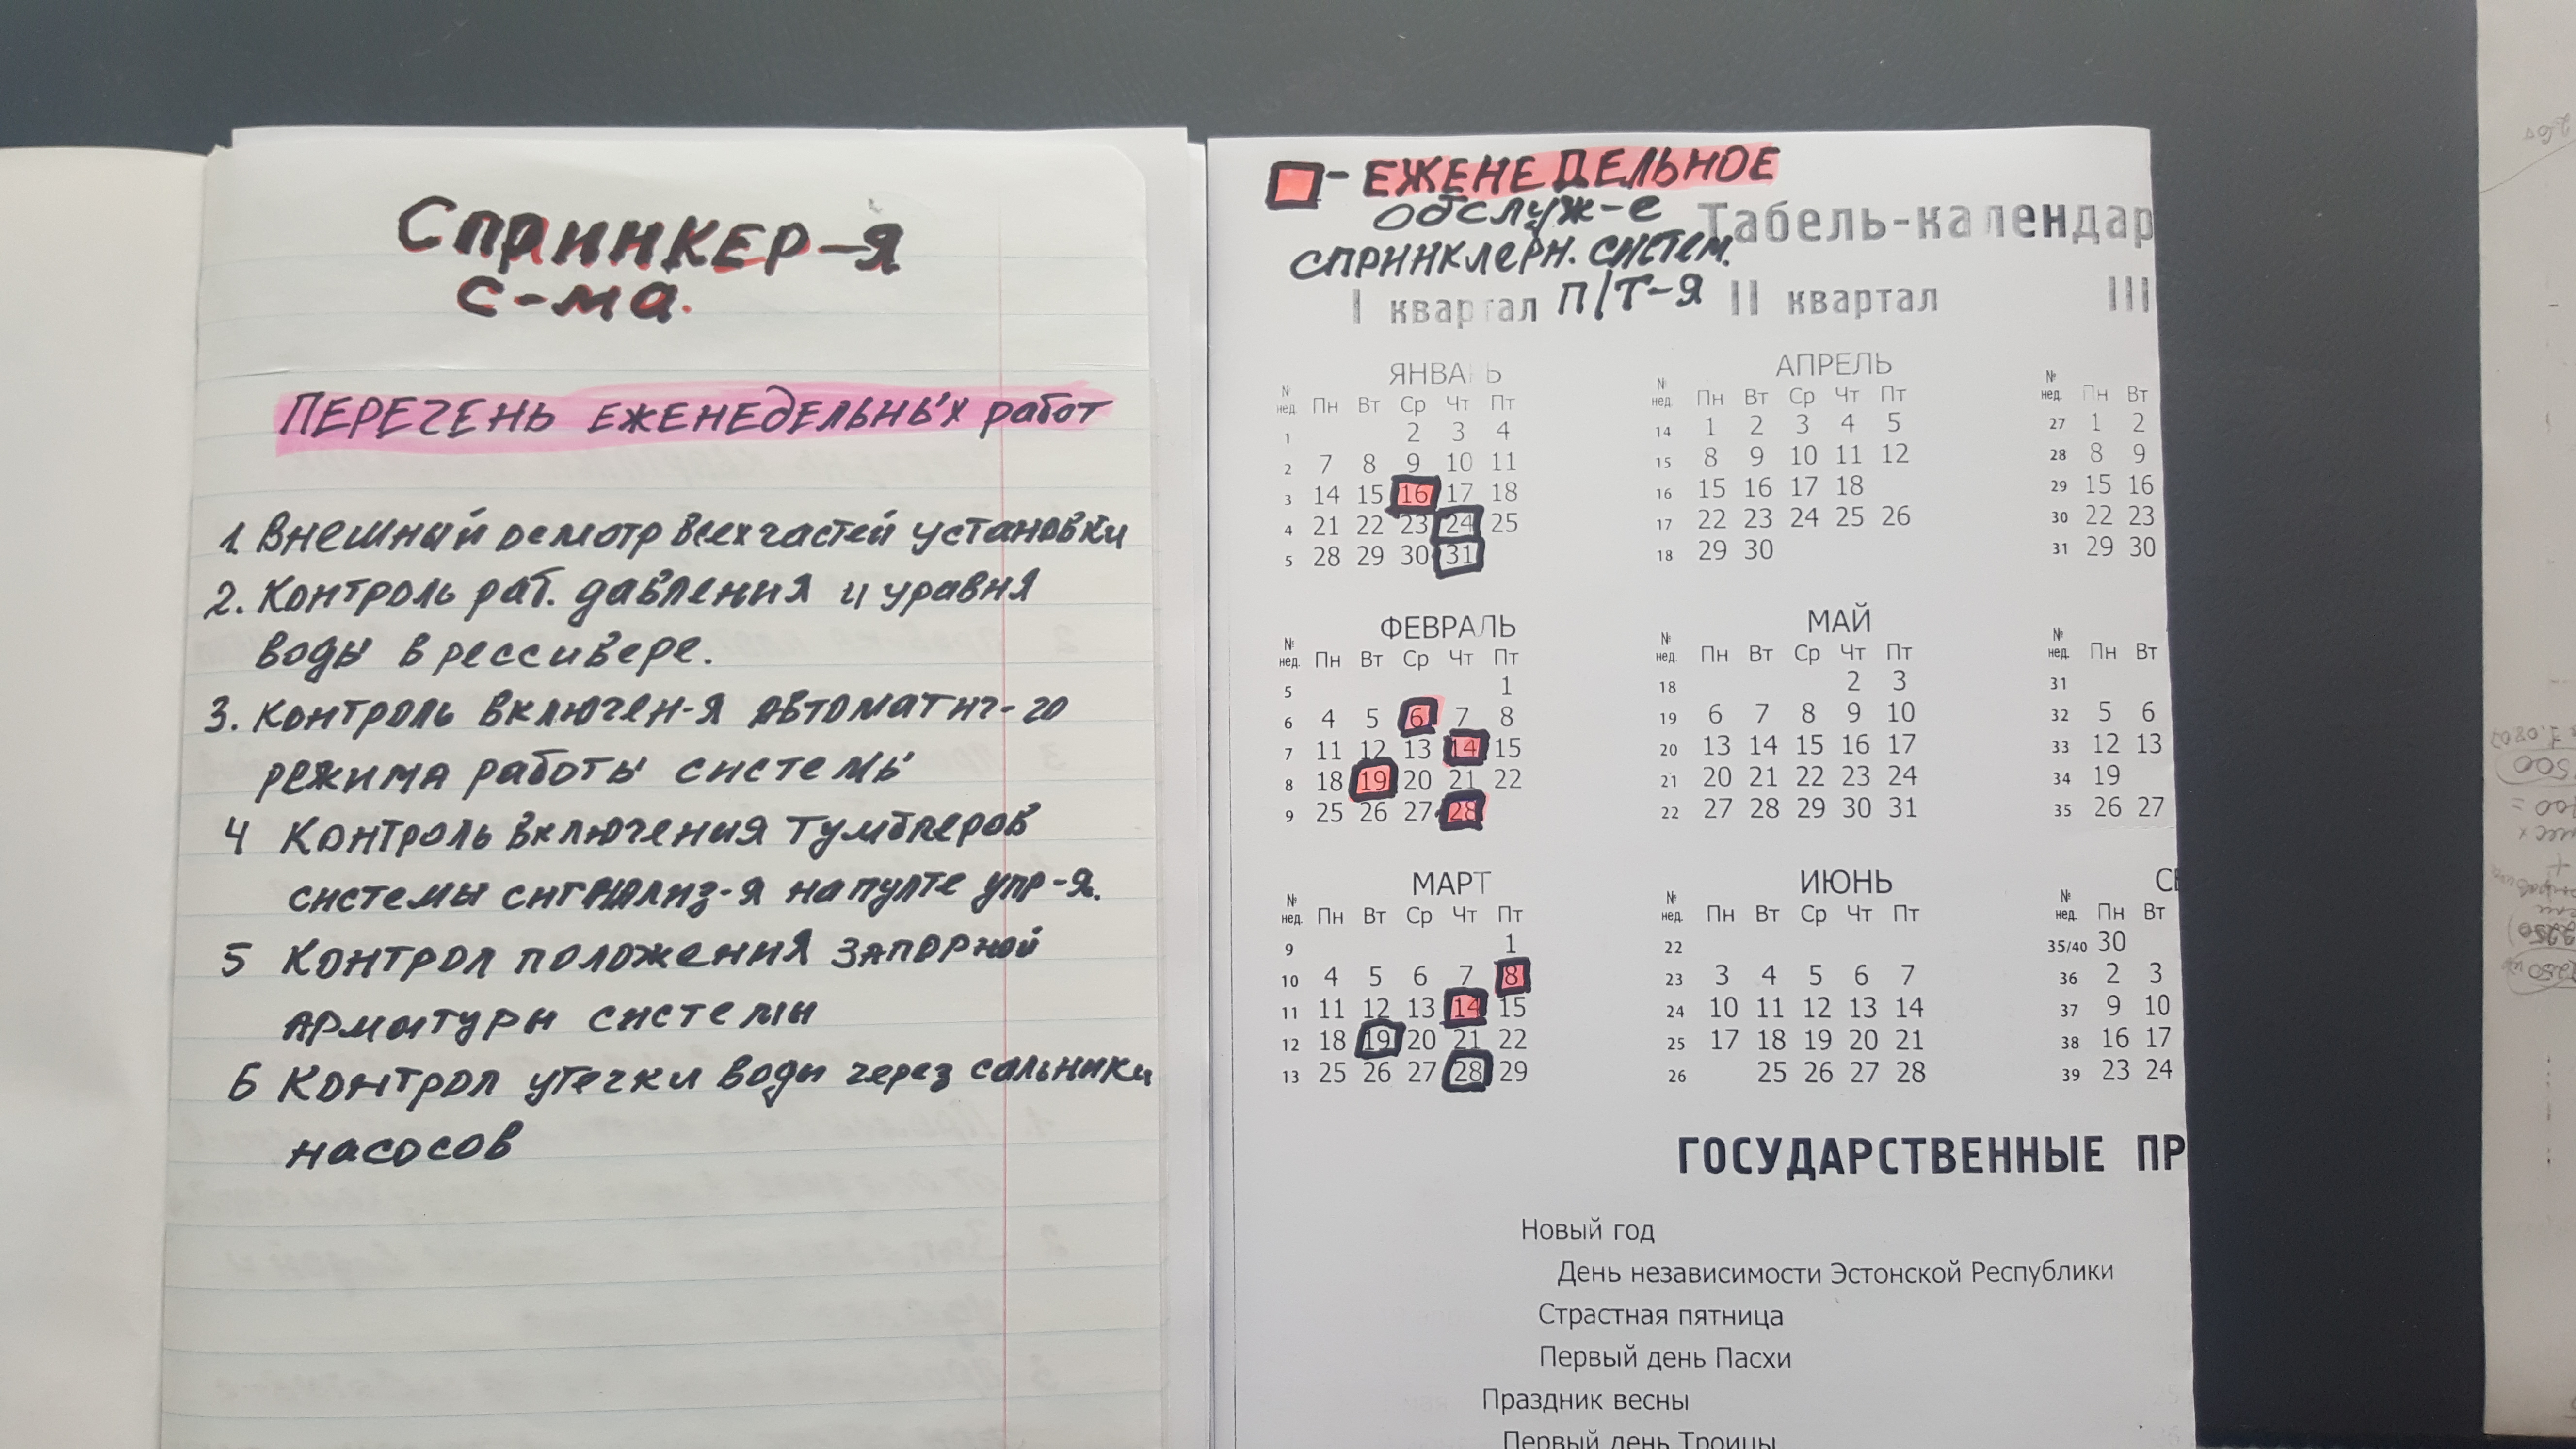 Спринкер-я
с-ма.
Перечень еженедельных работ
1. Внешний осмотр всех частей установки
2. Контроль раб. давления и уравня
воды в рессивере.
3. Контроль включен-я автоматич-го
режима работы системы
4 Контроль включения тумблеров
системы сигнализ-я на пулте упр-я.
5 Контрол положения запорной
арматуры системы
6 Контрол утечки воды через сальники
насосов
- ЕЖЕНЕДЕЛЬНОЕ
обслуж-е
спринклерн. систем.
п/т-я
Табель-календар
I квартал II квартал III
ЯНВАРЬ
№ нед. Пн Вт Ср Чт Пт
1 2 3 4
2 7 8 9 10 11
3 14 15 16 17 18
4 21 22 23 24 25
5 28 29 30 31
ФЕВРАЛЬ
№ нед. Пн Вт Ср Чт Пт
5 1
6 4 5 6 7 8
7 11 12 13 14 15
8 18 19 20 21 22
9 25 26 27 28
МАРТ
№ нед. Пн Вт Ср Чт Пт
9 1
10 4 5 6 7 8
11 11 12 13 14 15
12 18 19 20 21 22
13 25 26 27 28 29
АПРЕЛЬ
№ нед. Пн Вт Ср Чт Пт
14 1 2 3 4 5
15 8 9 10 11 12
16 15 16 17 18
17 22 23 24 25 26
18 29 30
МАЙ
№ нед. Пн Вт Ср Чт Пт
18 2 3
19 6 7 8 9 10
20 13 14 15 16 17
21 20 21 22 23 24
22 27 28 29 30 31
ИЮНЬ
№ нед. Пн Вт Ср Чт Пт
22
23 3 4 5 6 7
24 10 11 12 13 14
25 17 18 19 20 21
26 25 26 27 28
№ нед. Пн Вт
27 1 2
28 8 9
29 15 16
30 22 23
31 29 30
№ нед. Пн Вт
31
32 5 6
33 12 13
34 19
35 26 27
СЕ
№ нед. Пн Вт
35/40 30
36 2 3
37 9 10
38 16 17
39 23 24
ГОСУДАРСТВЕННЫЕ ПР
Новый год
День независимости Эстонской Республики
Страстная пятница
Первый день Пасхи
Праздник весны
Первый день Троицы